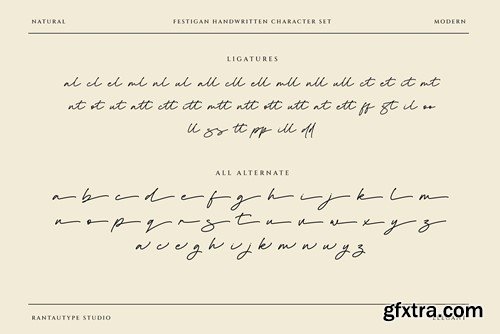 NATURAL FESTIGAN HANDWRITTEN CHARACTER SET MODERN
LIGATURES
al cl el ml nl ul all cll ell mll nll ull ct et it mt
nt ot ut att ctt itt mtt ntt ott utt at ett ff st il oo
ll ss tt pp ill dd
ALL ALTERNATE
a b c d e f g h i j k l m
n o p q r s t u v w x y z
a c e g h i j k m n u y z
RANTAUTYPE STUDIO
gfxtra.com